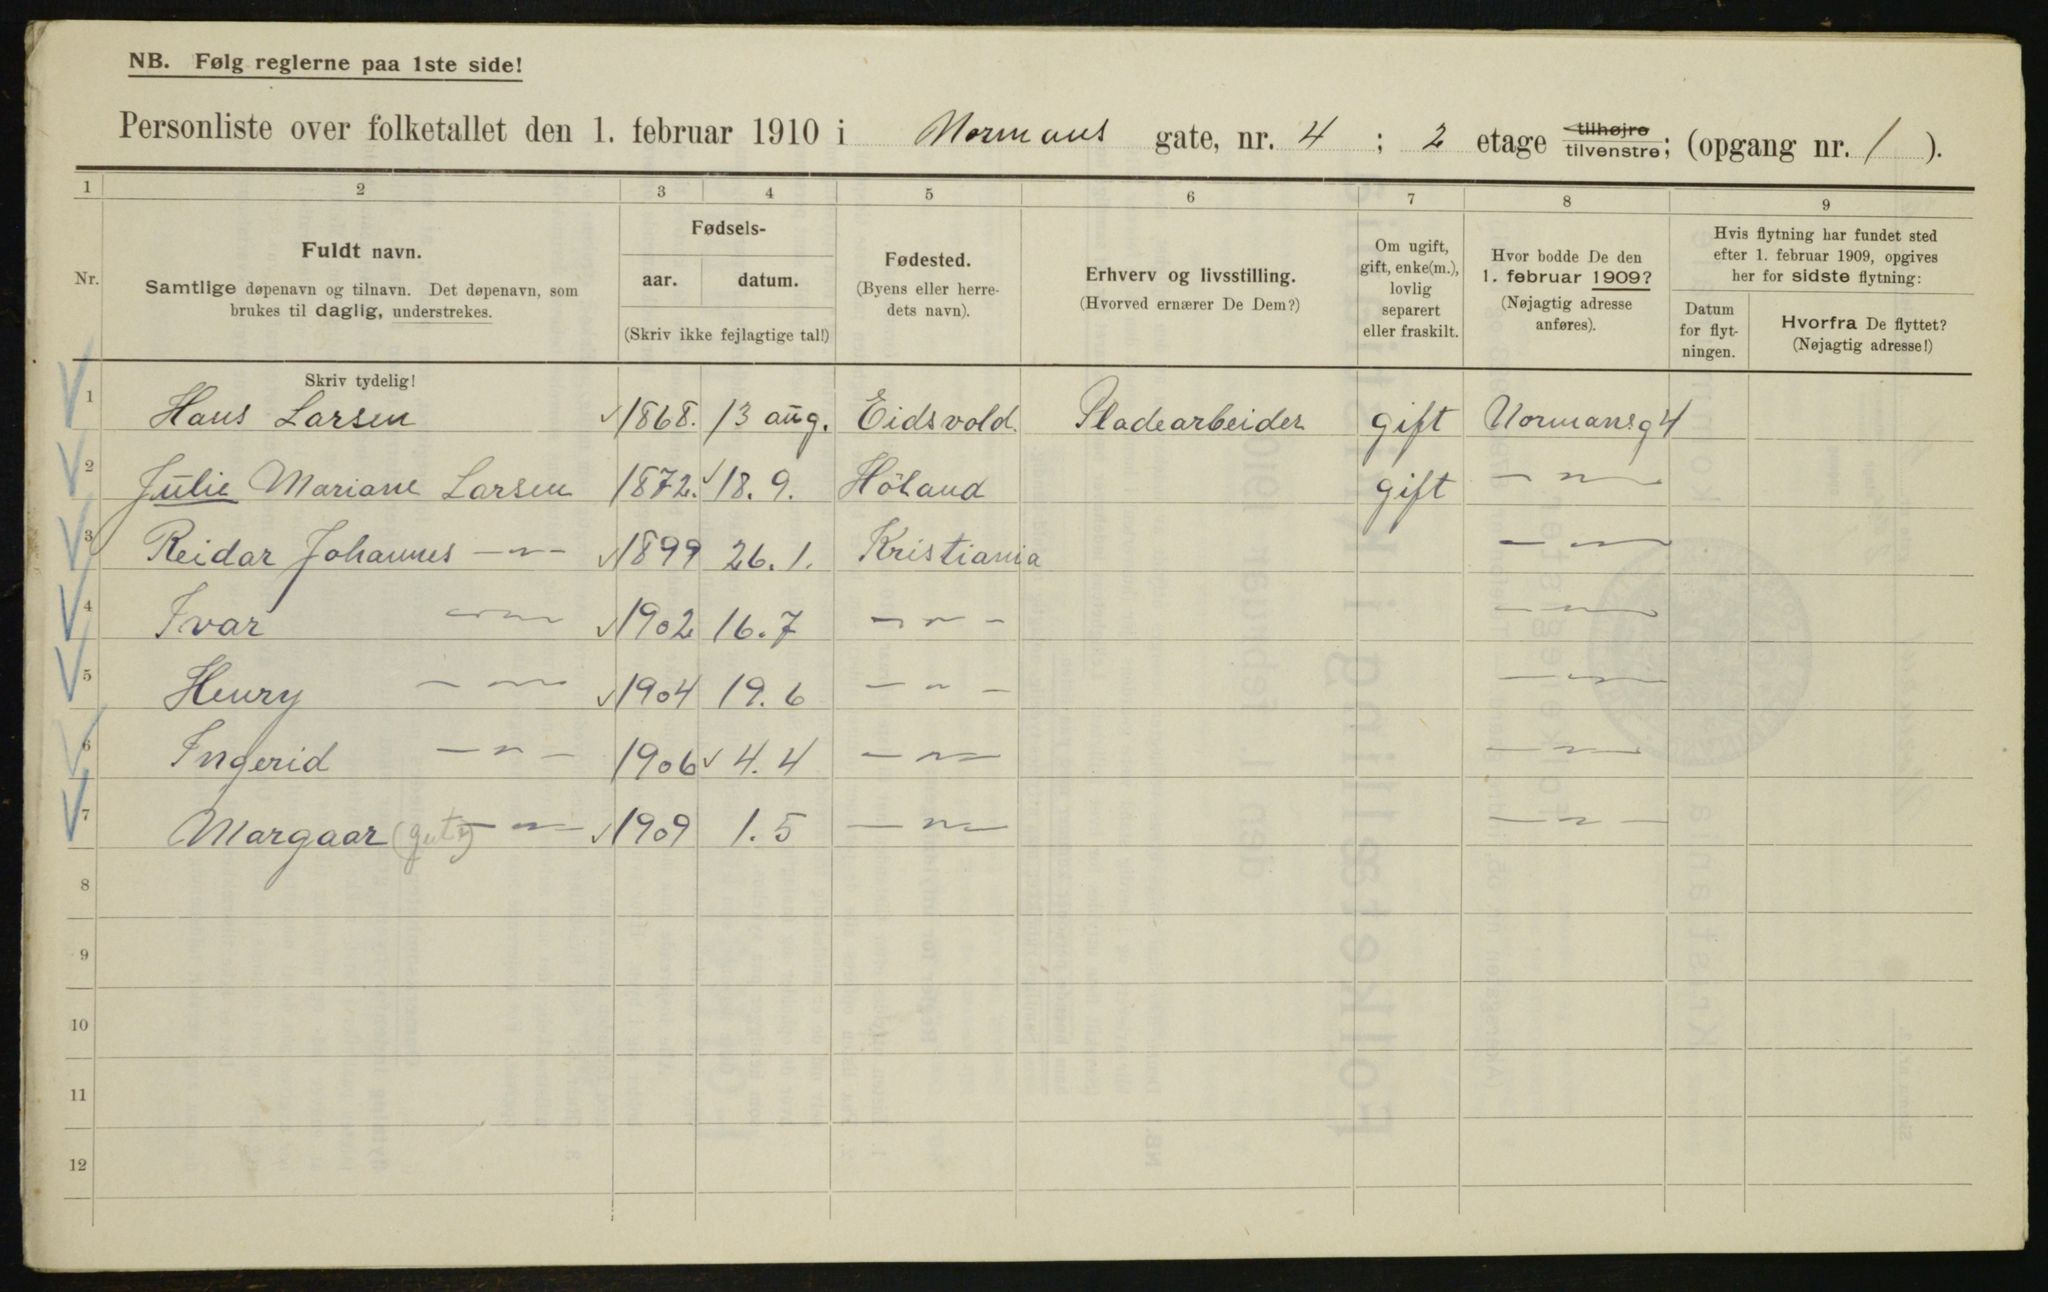 NB. Følg reglerne paa 1ste side!
Personliste over folketallet den 1. februar 1910 i Normans gate, nr. 4 ; 2 etage tilhøjre tilvenstre; (opgang nr. 1 ).
1 2 3 4 5 6 7 8 9
Nr.
Fuldt navn.
Samtlige døpenavn og tilnavn. Det døpenavn, som
brukes til daglig, understrekes.
Fødsels-
aar. datum.
(Skriv ikke fejlagtige tal!)
Fødested.
(Byens eller herre-
dets navn).
Erhverv og livsstilling.
(Hvorved ernærer De Dem?)
Om ugift,
gift, enke(m.),
lovlig
separert
eller fraskilt.
Hvor bodde De den
1. februar 1909?
(Nøjagtig adresse
anføres).
Hvis flytning har fundet sted
efter 1. februar 1909, opgives
her for sidste flytning:
Datum
for flyt-
ningen.
Hvorfra De flyttet?
(Nøjagtig adresse!)
Skriv tydelig!
1 Hans Larsen 1868. 13 aug. Eidsvold. Pladearbeider gift Normansg 4
2 Julie Mariane Larsen 1872. 18. 9. Höland gift — " —
3 Reidar Johannes — " — 1899 26. 1. Kristiania — " —
4 Ivar — " — 1902 16. 7 — " — — " —
5 Henry — " — 1904 19. 6 — " — — " —
6 Ingerid — " — 1906 4. 4 — " — — " —
7 Margaar (gut?) — " — 1909 1. 5 — " — — " —
8
9
10
11
12